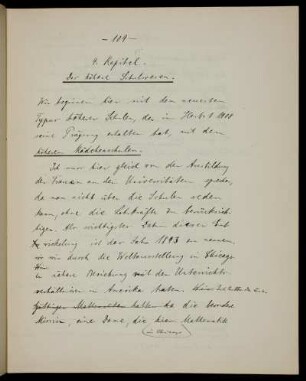 - 109 -
9. Kapitel.
Das höhere Schulwesen.
Wir beginnen hier mit dem neuesten
Typus höherer Schulen, der im Herbst 1908
seine Prägung erhalten hat, mit den
höheren Mädchenschulen.
Ich muss hier gleich von der Ausbildung
der Frauen an den Universitäten reden,
da man nicht über die Schulen reden
kann, ohne die Lehrkräfte zu berücksich-
tigen. Als wichtigstes Datum dieser Ent-
wickelung ist das Jahr 1893 zu nennen,
wo wir durch die Weltausstellung in Chicago
in nähere Fühlung mit den Unterrichts-
verhältnissen in Amerika traten.
Göttinger Mathematiker hatten da die
eine Dame, die dem Mathematik
in Chicago